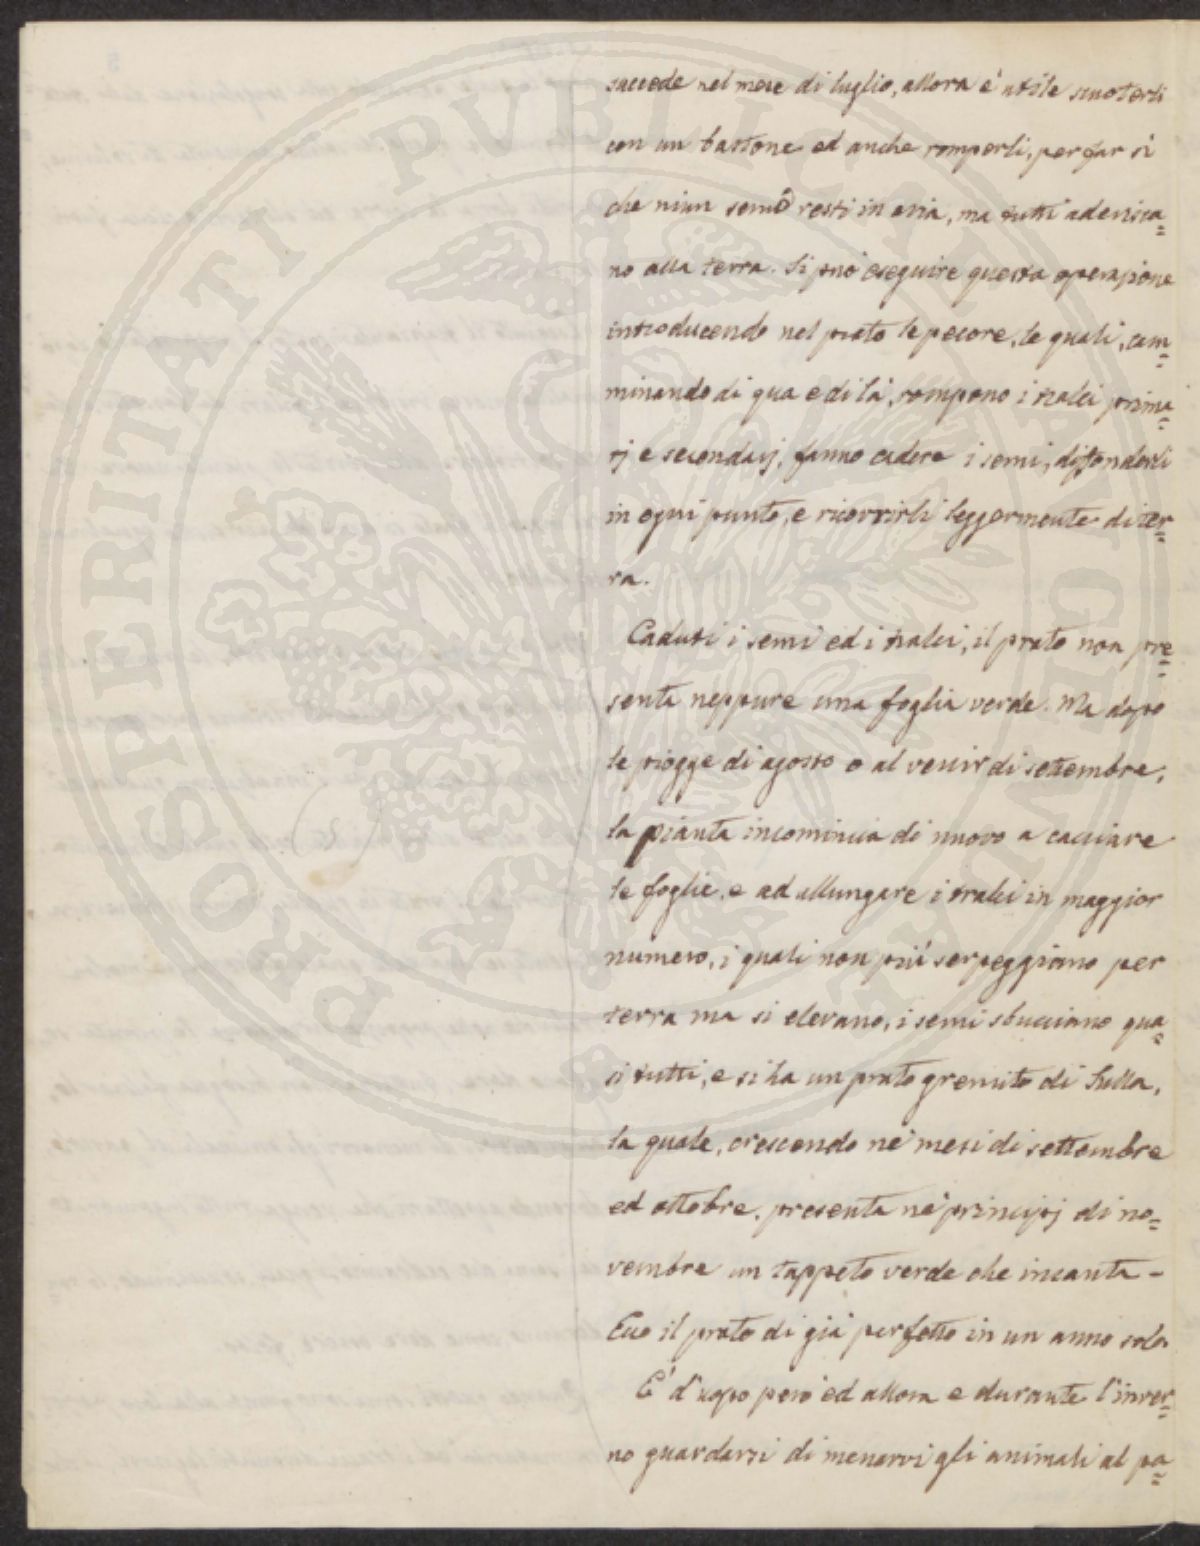 succede nel mese di luglio, allora è utile scuoterli
con un bastone ed anche romperli, per far sì
che niun seme resti in aria, ma tutti aderisca=
no alla terra. Si può eseguire questa operazione
introducendo nel prato le pecore, le quali, cam=
minando di qua e di là, rompono i tralci prima=
rj e secondarj, fanno cadere i semi, diffonderli
in ogni punto, e ricovrirli leggermente di ter=
ra.
Caduti i semi ed i tralci, il prato non pre=
senta neppure una foglia verde. Ma dopo
le piogge di agosto o al venir di settembre,
la pianta incomincia di nuovo a cacciare
le foglie, e ad allungare i tralci in maggior
numero, i quali non più serpeggiano per
terra ma si elevano, i semi sbucciano qua=
si tutti, e si ha un prato gremito di Sulla,
la quale, crescendo ne' mesi di settembre
ed ottobre, presenta ne' principj di no=
vembre un tappeto verde che incanta -
Ecco il prato di già perfetto in un anno solo.
E' d'uopo però ed allora e durante l'inver=
no guardarsi di menarvi gli animali al pa=
PROSPERITATI PUBLICAE AUGENDAE